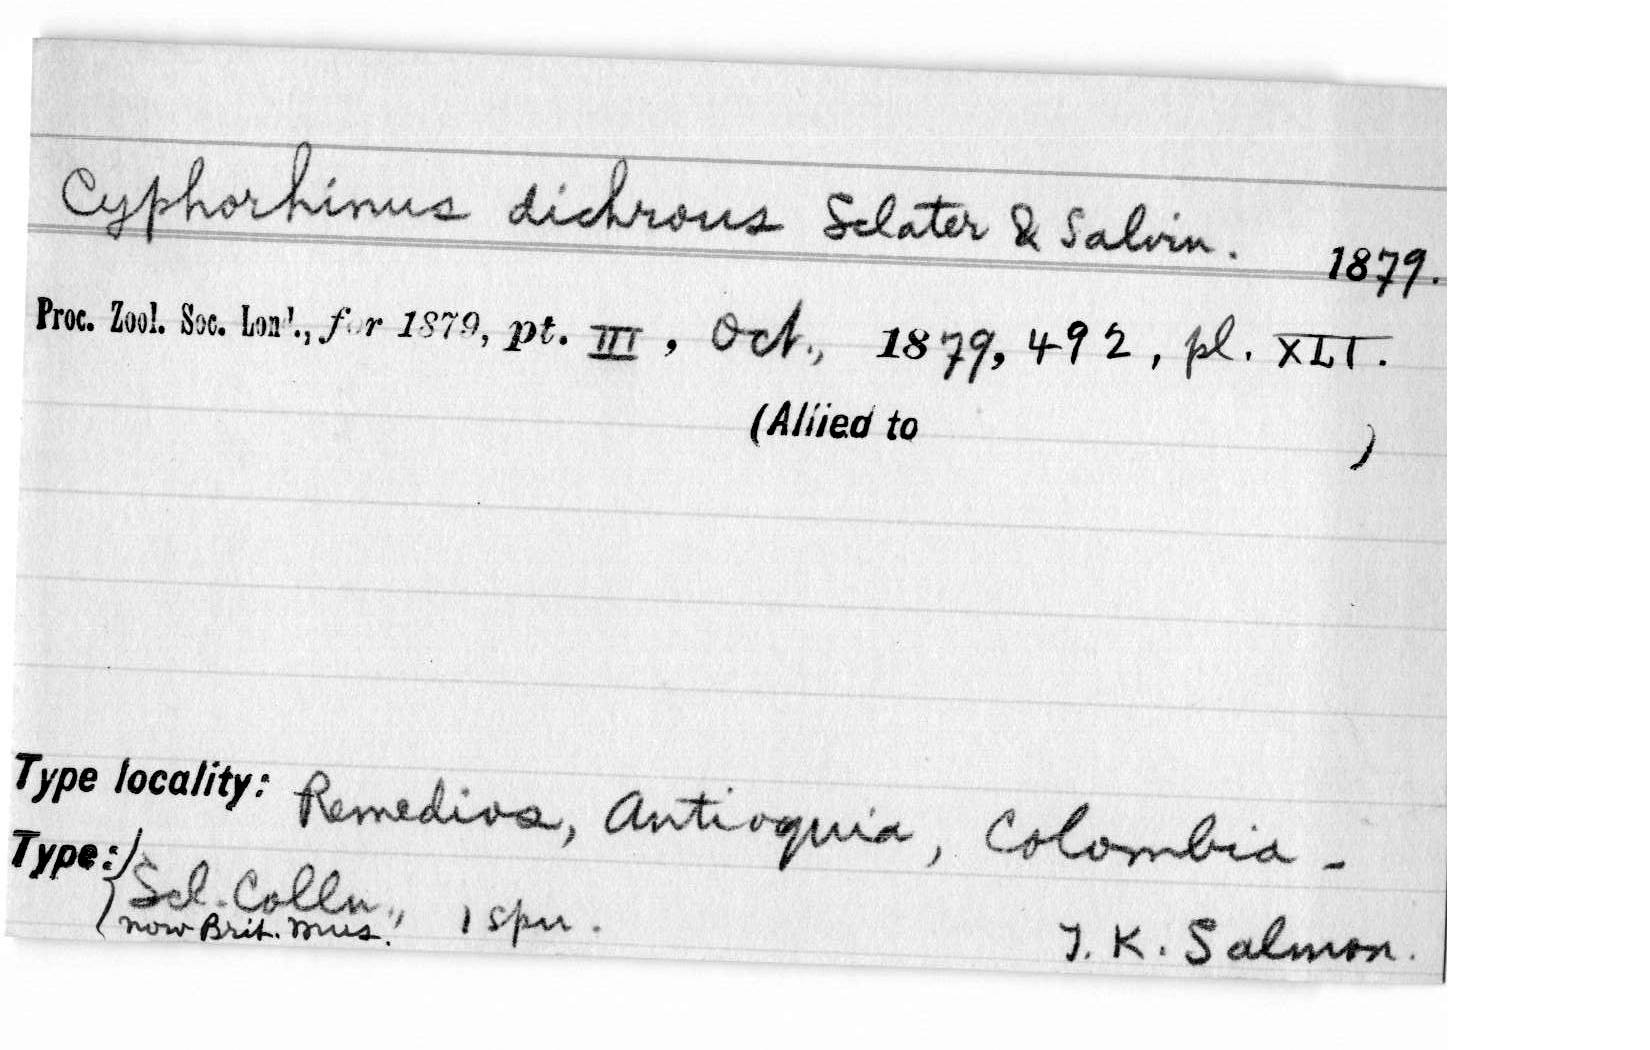 Cyphorhinus dichrous Sclater & Salvin. 1879.
Proc. Zool. Soc. Lond., for 1879, pt. III, Oct., 1879, 492, pl. XLI.
(Allied to )
Type locality: Remedios, Antioquia, Colombia -
Type: Scl. Colln., 1 spn.
now Brit. Mus. T. K. Salmon.